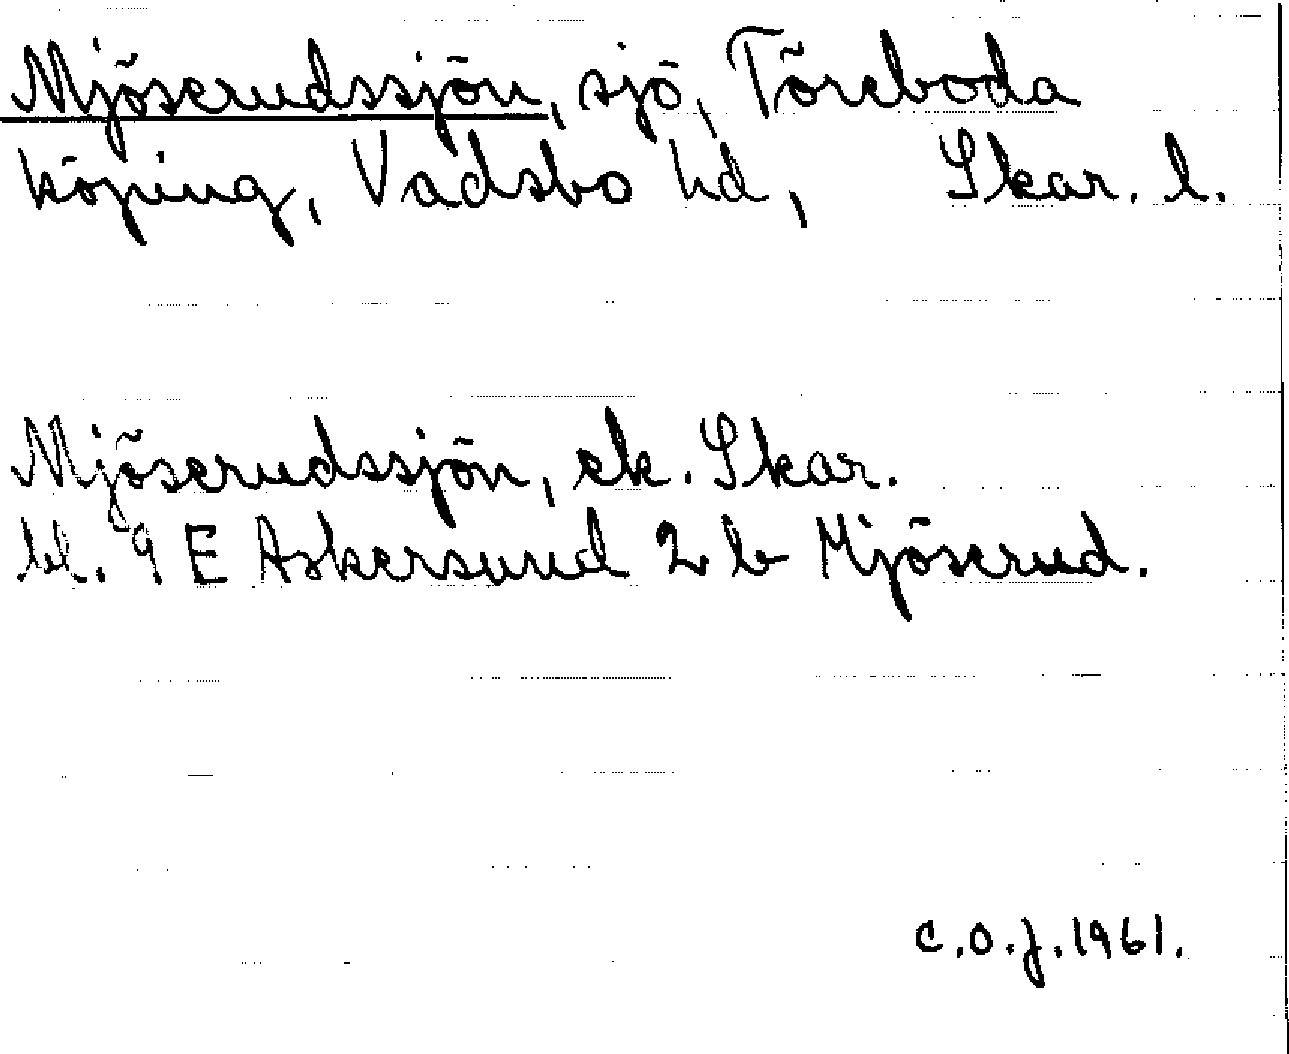 Mjöserudssjön, sjö, Töreboda
köping, Vadsbo hd, Skar. l.
Mjöserudssjön, ek. Skar.
bl. 9 E Askersund 2 b Mjöserud.
C.O.J. 1961.